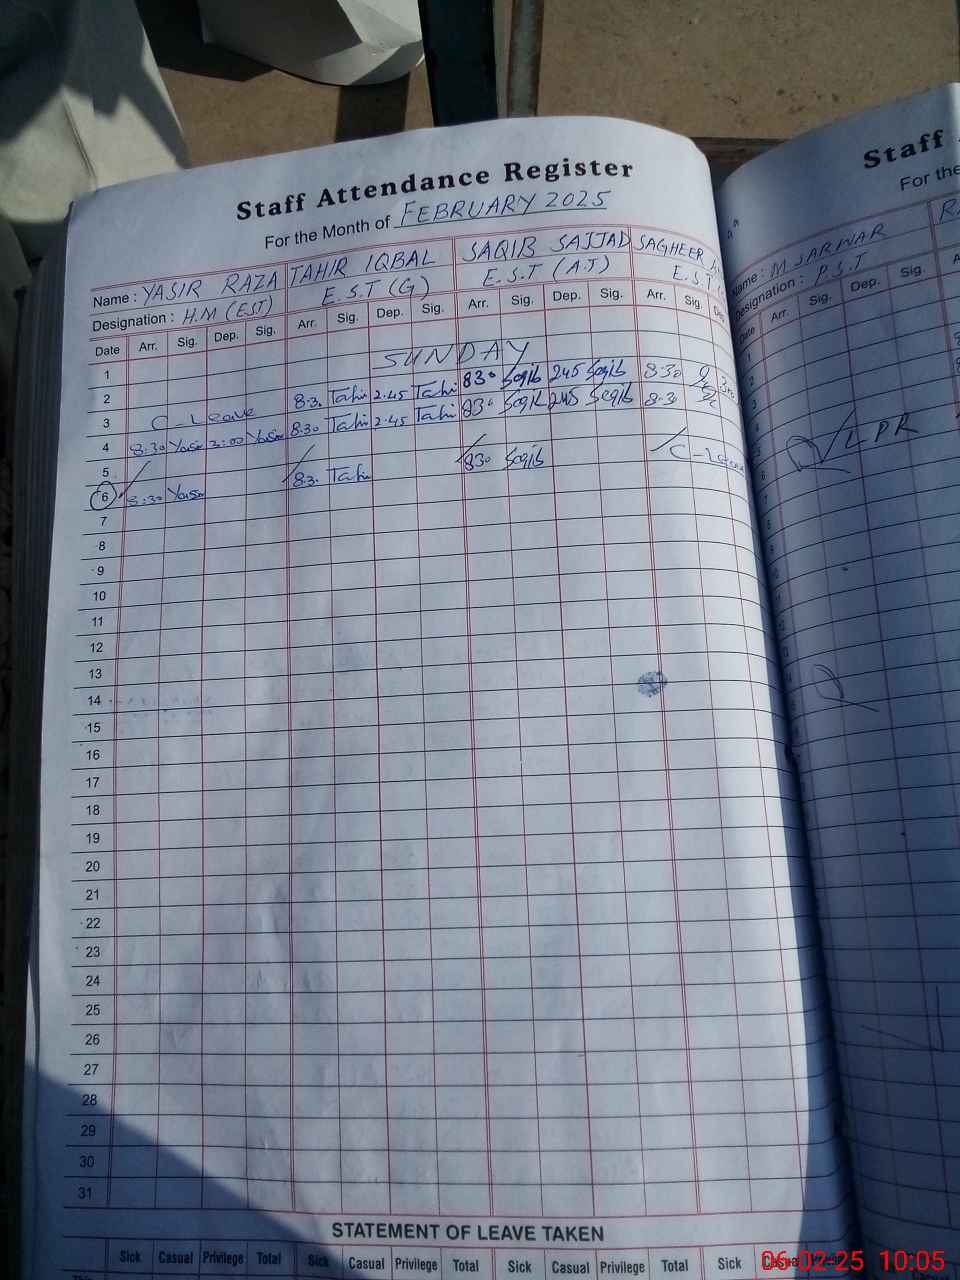 Staff Attendance Register
For the Month of FEBRUARY 2025
Name : YASIR RAZA TAHIR IQBAL SAQIB SAJJAD SAGHEER
Designation : H.M (EST) E.S.T (G) E.S.T (A.T) E.S.T
Date Arr. Sig. Dep. Sig. Arr. Sig. Dep. Sig. Arr. Sig. Dep. Sig. Arr. Sig. De
1
2 SUNDAY
3 C-Leave 8:30 Tahir 2.45 Tahir 830 Saqib 245 Saqib 8:30
4 8:30 Yasir 2:00 Yasir 8:30 Tahir 2.45 Tahir 830 Saqib 245 Saqib 8:30
5
6 8:30 Yasir 8:30 Tahir 830 Saqib C-Leave
7
8
9
10
11
12
13
14
15
16
17
18
19
20
21
22
23
24
25
26
27
28
29
30
31
STATEMENT OF LEAVE TAKEN
Sick Casual Privilege Total Sick Casual Privilege Total Sick Casual Privilege Total Sick
Staff
For the
Name : M SARWAR
Designation : P.S.T
Date Arr. Sig. Dep. Sig.
1
2
3
LPR
06-02-25 10:05